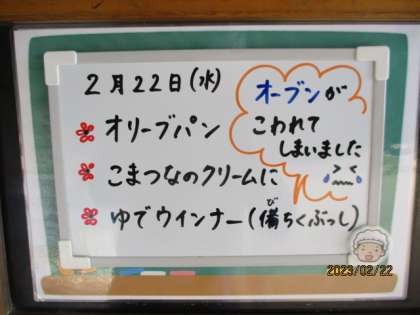 2月22日(水)
オリーブパン
こまつなのクリームに
ゆでウインナー(備ちくぶっし)
び
オーブンが
こわれて
しまいました
2023/02/22